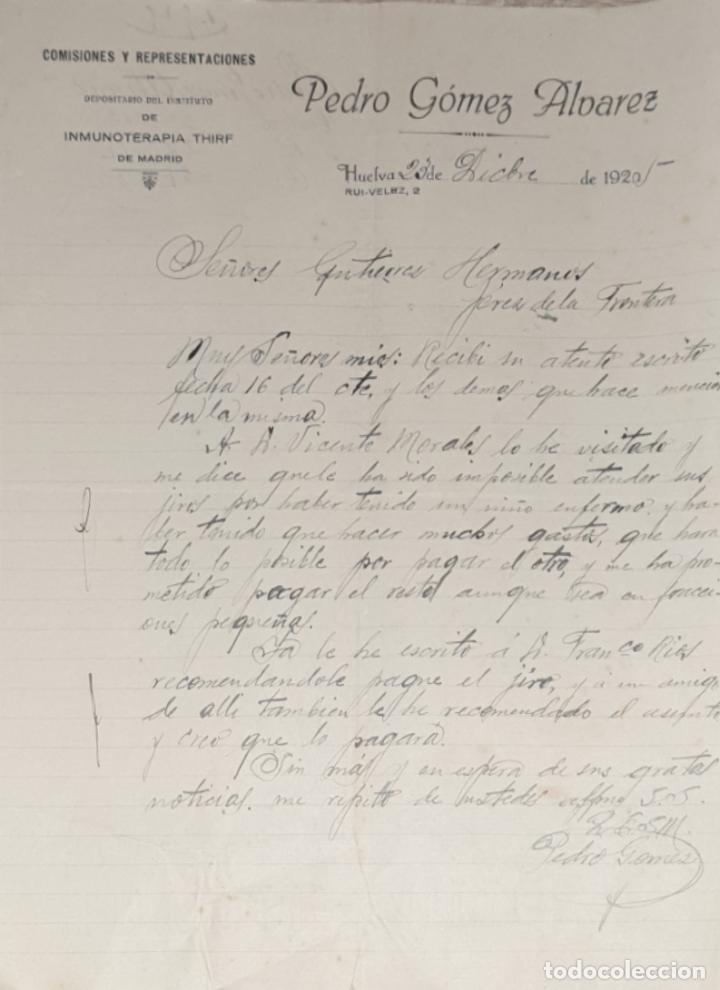 COMISIONES Y REPRESENTACIONES
DEPOSITARIO DEL INSTITUTO
DE
INMUNOTERAPIA THIRF
DE MADRID
Pedro Gómez Alvarez
Huelva 23 de Dicbre de 1925
RUI-VELEZ, 2
Señores Gutierres Hermanos
Jeres de la Frontera
Muy Señores mios: Recibi su atento escrito
fecha 16 del cte, y los demas que hace mencion
en la misma.
A D. Vicente Morales lo he visitado y
me dice que le ha sido imposible atender sus
jiros por haber tenido un niño enfermo, y ha-
ber tenido que hacer muchos gastos, que hara
todo lo posible por pagar el otro, y me ha pro-
metido pagar el resto aunque sea en fracci-
ones pequeñas.
Ya le he escrito á D. Franco Rios
recomendandole pague el jiro, y á un amigo
de alli tambien le he recomendado el asunto
y creo que lo pagará.
Sin más y en espera de sus gratas
noticias, me repito de ustedes affmo S.S.
Q.E.S.M.
Pedro Gomez
todocoleccion